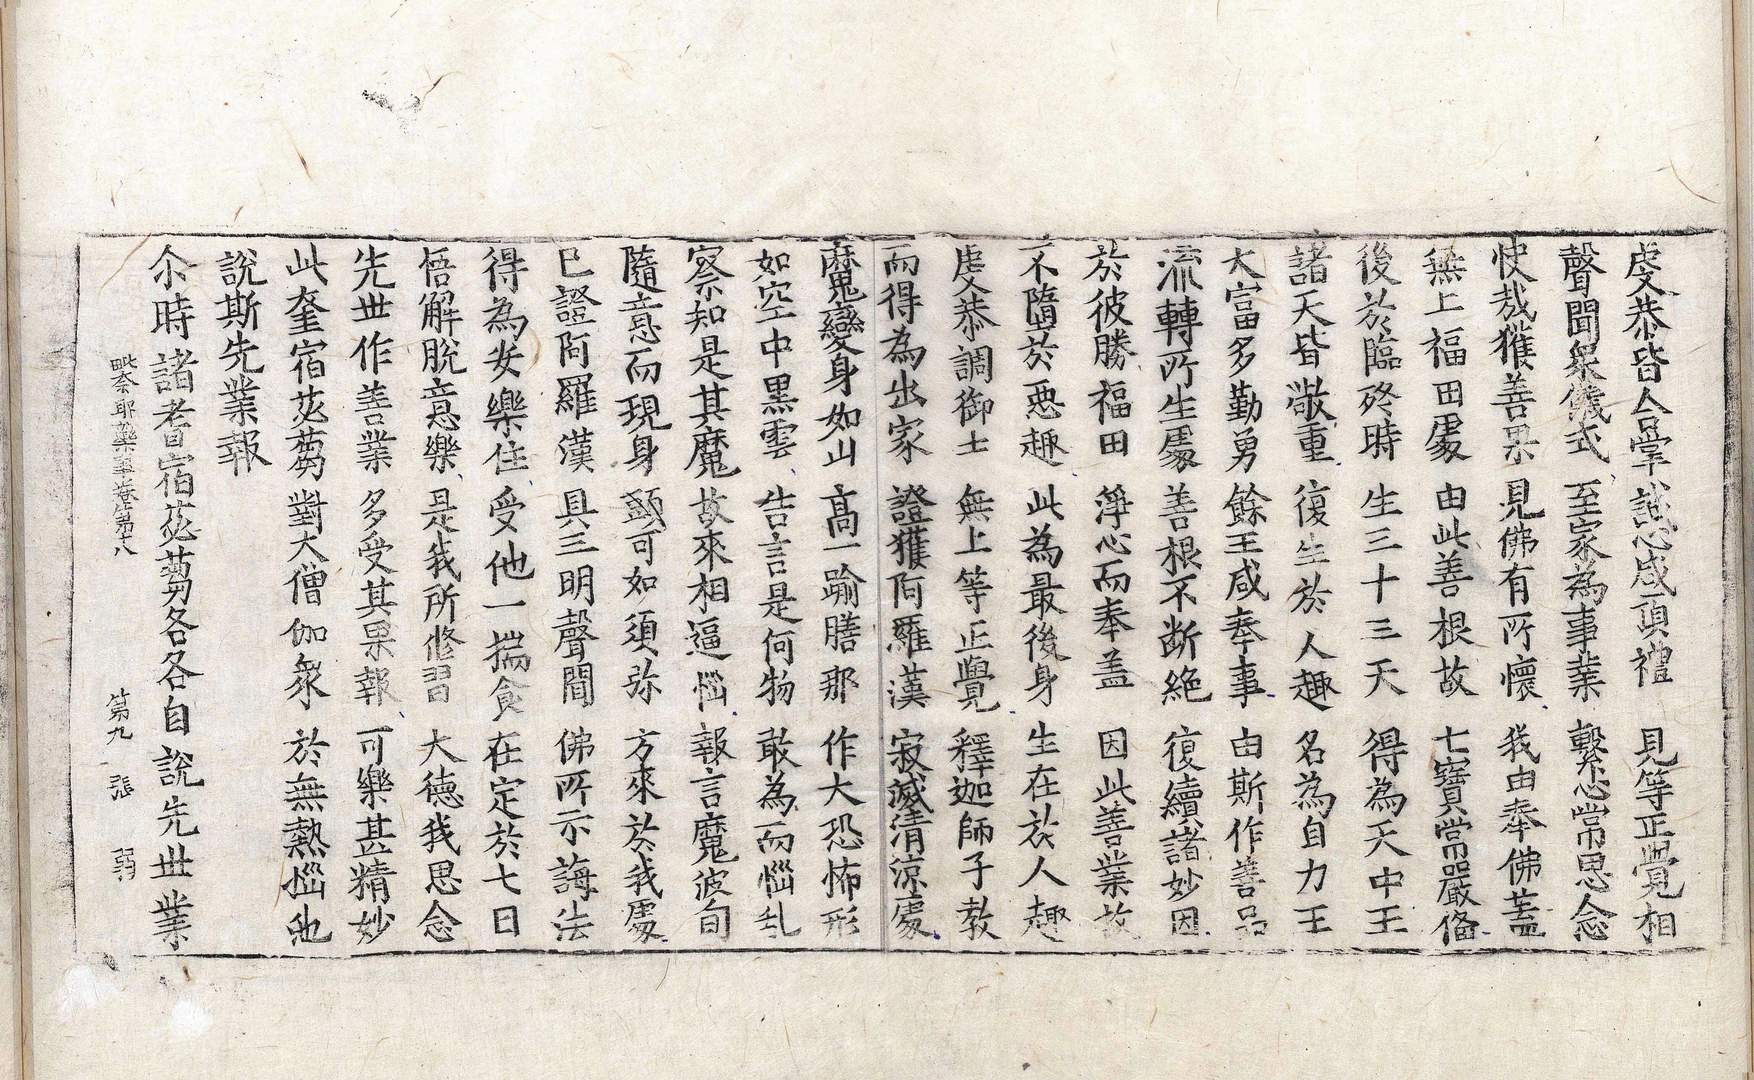 虔恭皆合掌 誠心咸頂禮 見等正覺相
聲聞衆儀式 至家為事業 繫念當思念
快哉獲善果 見佛有所懷 我由奉佛蓋
無上福田處 由此善根故 七寶常嚴俻
後於臨終時 生三十三天 得為天中王
諸天皆敬重 復生於人趣 名為自力王
大富多勤勇 餘王咸奉事 由斯作善品
流轉所生處 善根不断絶 復續諸妙因
於彼勝福田 淨心而奉盖 因此善業故
不墮於悪趣 此為最後身 生在於人趣
虔恭調御士 無上等正覺 釋迦師子教
而得為出家 證獲阿羅漢 寂滅清涼處
魔鬼變身如山 高一踰膳那 作大恐怖形
如空中黒雲 告言是何物 敢為而惱乱
察知是其魔 故來相逼惱 報言魔波旬
隨意而現身 顧可如須弥 方來於我處
已證阿羅漢 具三明聲聞 佛所示誨法
得為安樂住 受他一摶食 在定於七日
悟解脫意樂 是我所修習 大德我思念
先世作善業 多受其果報 可樂甚精妙
此奎宿苾蒭 對大僧伽衆 於無熱惱池
說斯先業報
尒時諸耆宿苾蒭各各自說先世業
毗奈耶藥事卷第十八 第九張 弱